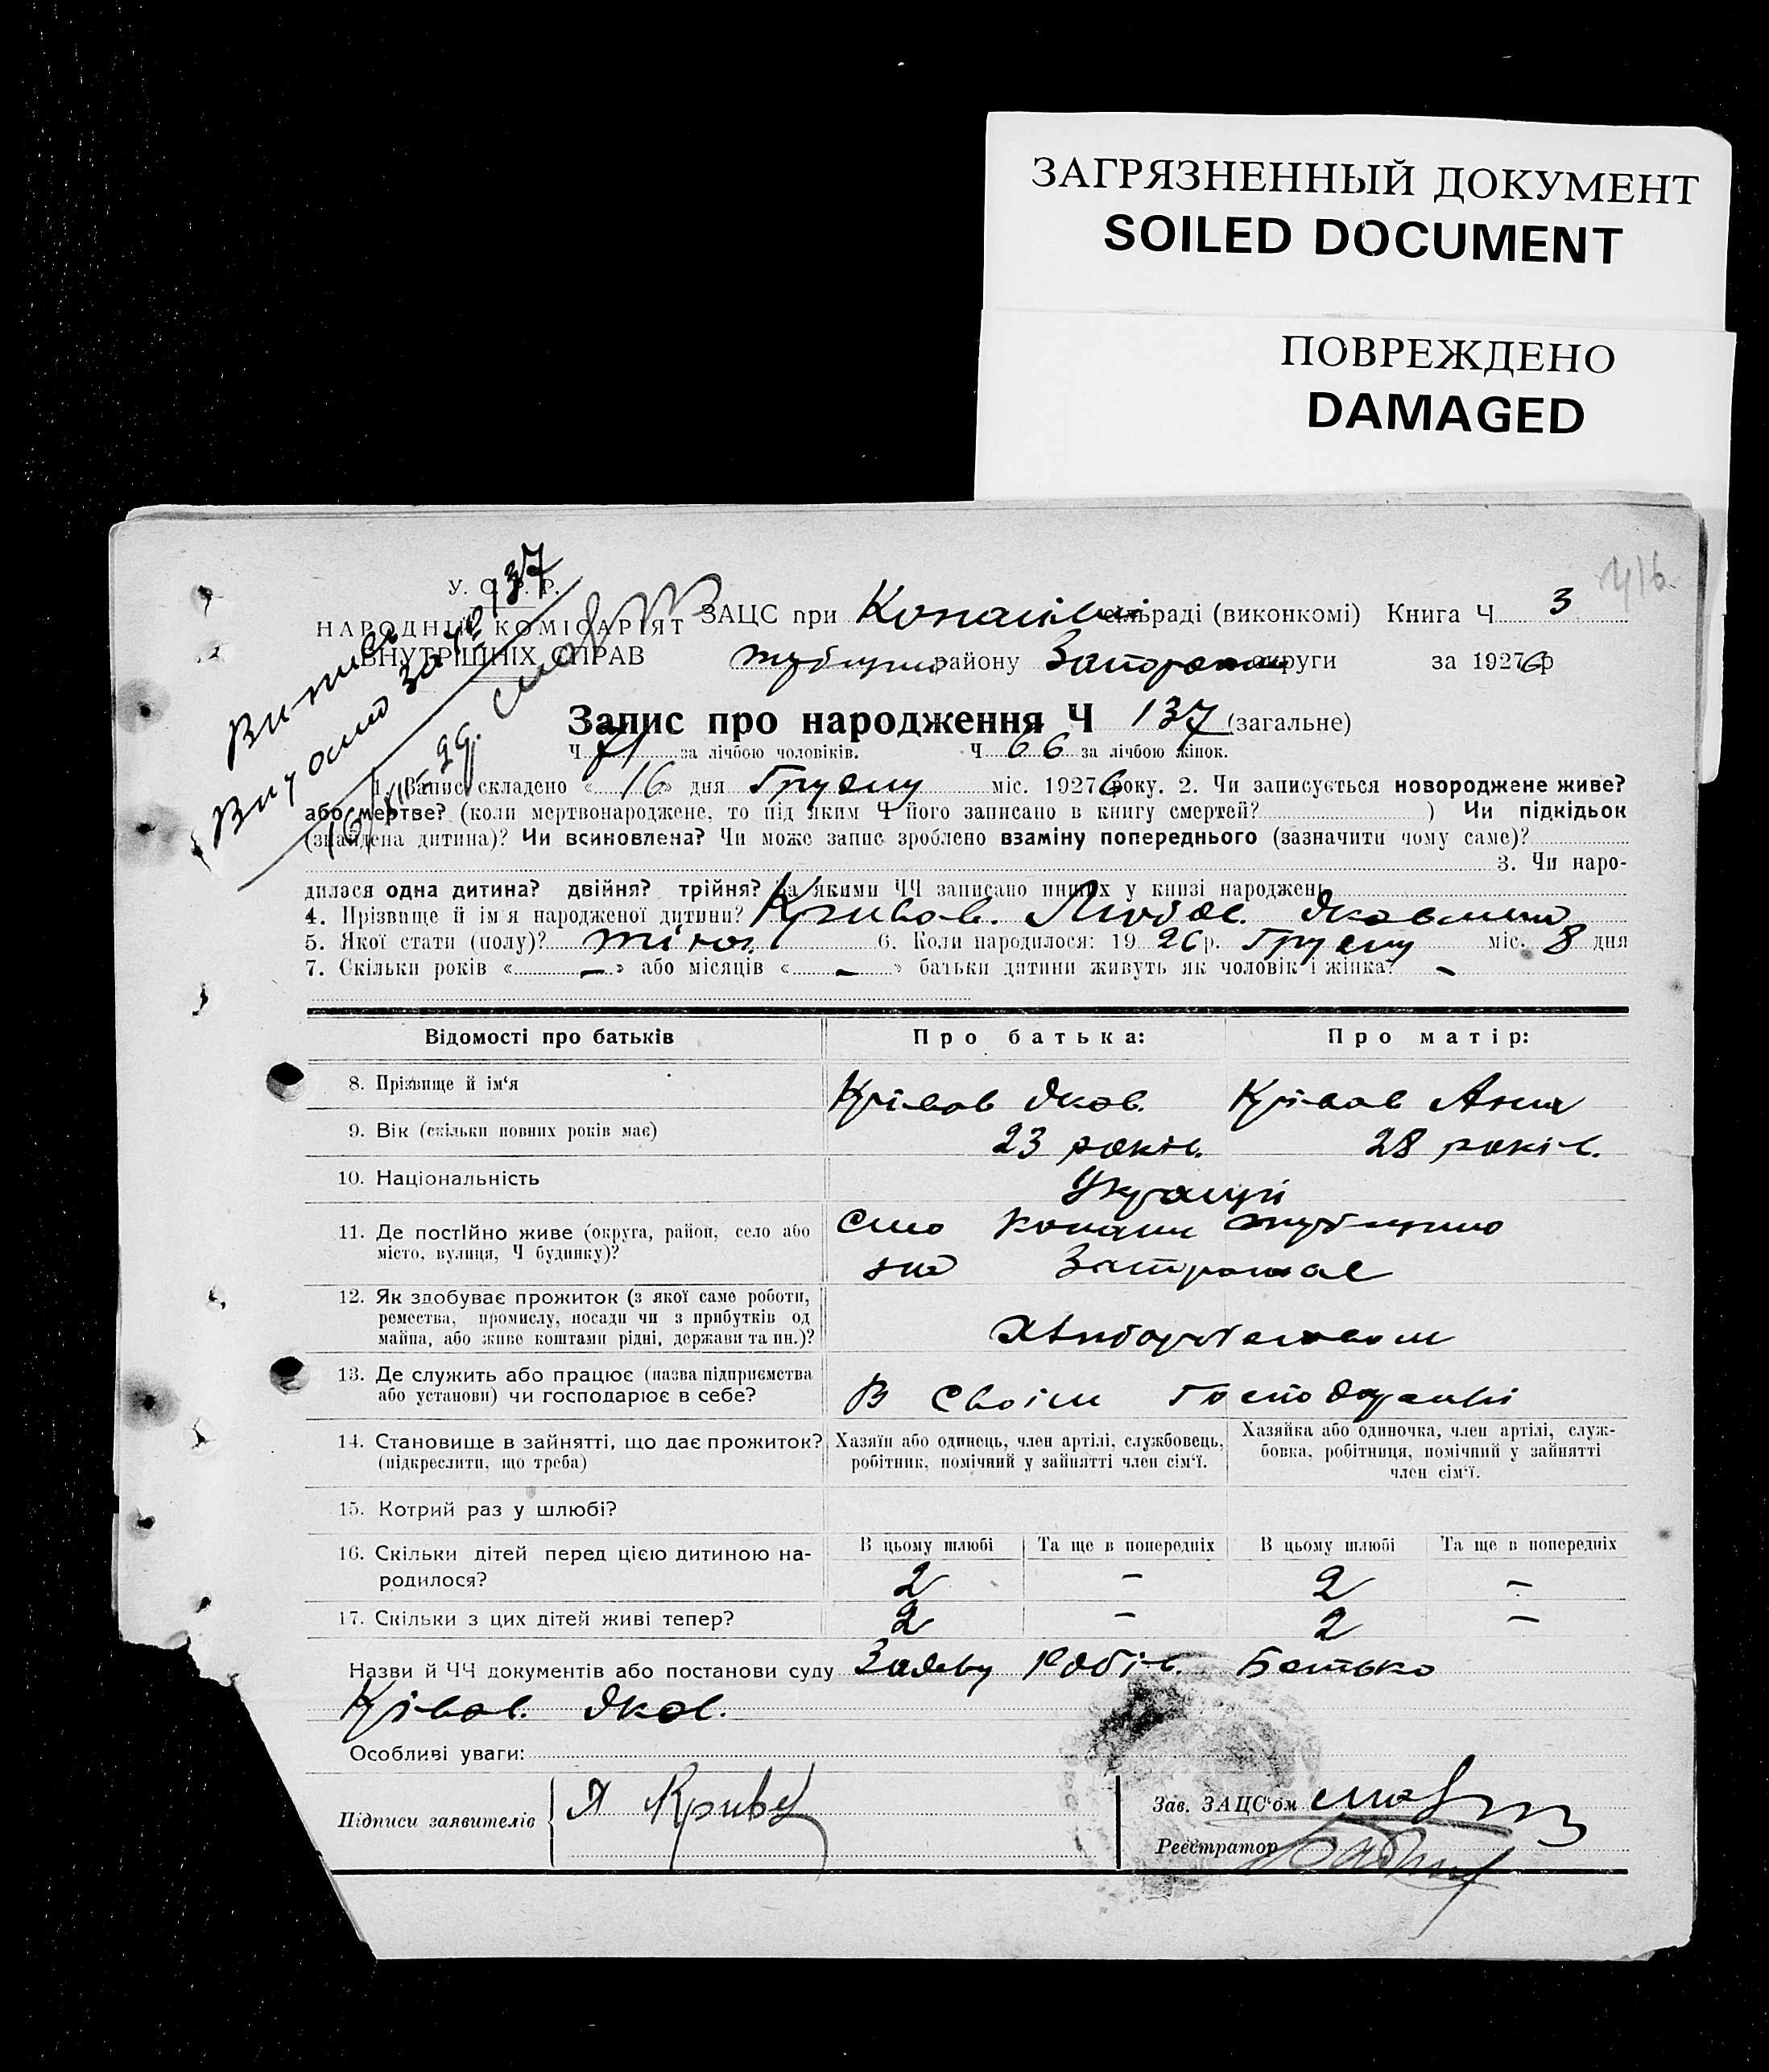 ЗАГРЯЗНЕННЫЙ ДОКУМЕНТ
SOILED DOCUMENT
ПОВРЕЖДЕНО
DAMAGED
416.
У. С. Р. Р.
НАРОДНІЙ КОМІСАРІЯТ
ВНУТРІШНІХ СПРАВ
Видано за № 137
ЗАЦС при сільраді (виконкомі) Книга Ч 3
району округи за 1926 р
Запис про народження Ч 137 (загальне)
Ч 71 за лічбою чоловіків. Ч 66 за лічбою жінок.
1. Запис складено « 16 » дня Грудню міс. 1926 року. 2. Чи записується новороджене живе?
або мертве? (коли мертвонароджене, то під яким Ч його записано в книгу смертей? ) Чи підкідьок
(знайдена дитина)? Чи всиновлена? Чи може запис зроблено взаміну попереднього (зазначити чому саме)?
3. Чи наро-
дилася одна дитина? двійня? трійня? За якими ЧЧ записано инших у книзі народжень
4. Прізвище й ім'я народженої дитини? Кривов. Любов. Яковлина
5. Якої стати (полу)? жіноч. 6. Коли народилося: 19 26 р. Грудню міс. 8 дня
7. Скільки років « — » або місяців « — » батьки дитини живуть як чоловік і жінка? -
Відомості про батьків Про батька: Про матір:
8. Прізвище й ім'я Крівов Яков. Крівов Анна
9. Вік (скільки повних років має) 23 років. 28 років.
10. Національність Українці
11. Де постійно живе (округа, район, село або Село Копани
місто, вулиця, Ч будинку)?
12. Як здобуває прожиток (з якої саме роботи,
ремества, промислу, посади чи з прибутків од
майна, або живе коштами рідні, держави та ин.)? Хліборобством
13. Де служить або працює (назва підприємства
або установи) чи господарює в себе? В своїм господарстві
14. Становище в зайнятті, що дає прожиток? Хазяїн або одинець, член артілі, службовець, Хазяйка або одиночка, член артілі, служ-
(підкреслити, що треба) робітник, помічний у зайнятті член сім'ї. бовка, робітниця, помічний у зайнятті
член сім'ї.
15. Котрий раз у шлюбі?
16. Скільки дітей перед цією дитиною на- В цьому шлюбі Та ще в попередніх В цьому шлюбі Та ще в попередніх
родилося? 2 — 2 —
17. Скільки з цих дітей живі тепер? 2 — 2 —
Назви й ЧЧ документів або постанови суду Заяву робів. Батько
Крівов. Яков.
Особливі уваги:
Підписи заявителів Я Кривов
Зав. ЗАЦС'ом
Реєстратор